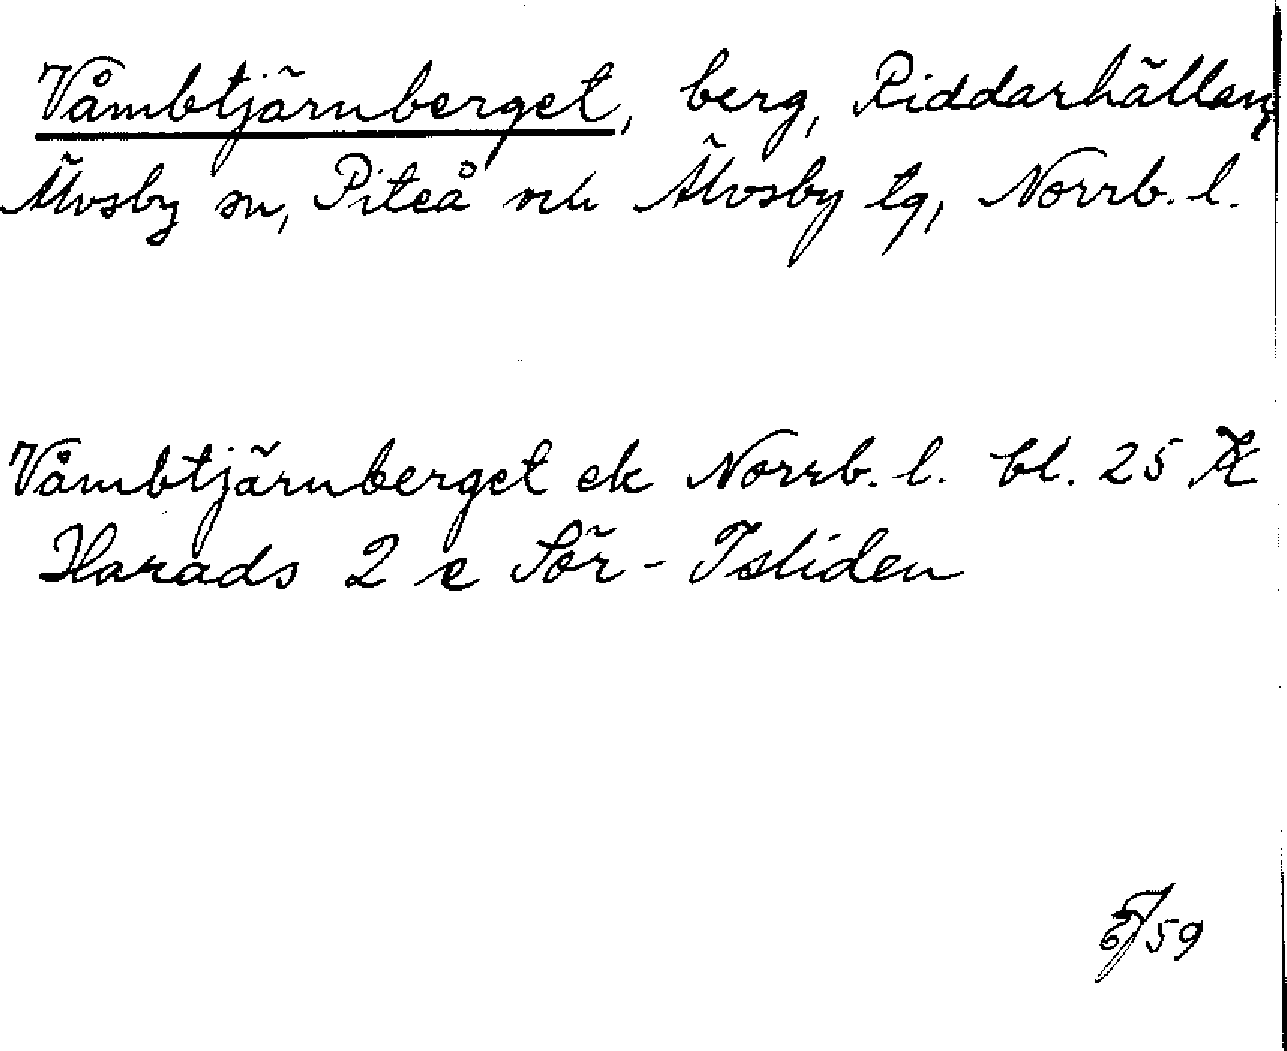 Våmbtjärnberget, berg, Riddarhällan,
Älvsby sn, Piteå o. Älvsby tg, Norrb. l.
Våmbtjärnberget ek Norrb. l. bl. 25 K
Harads 2 c Sör-Isliden
59